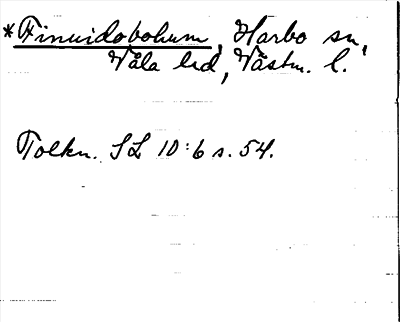 *Finuidobohum, Harbo sn,
Våla hd, Västm. l.
Tolkn. SL 10:6 s. 54.